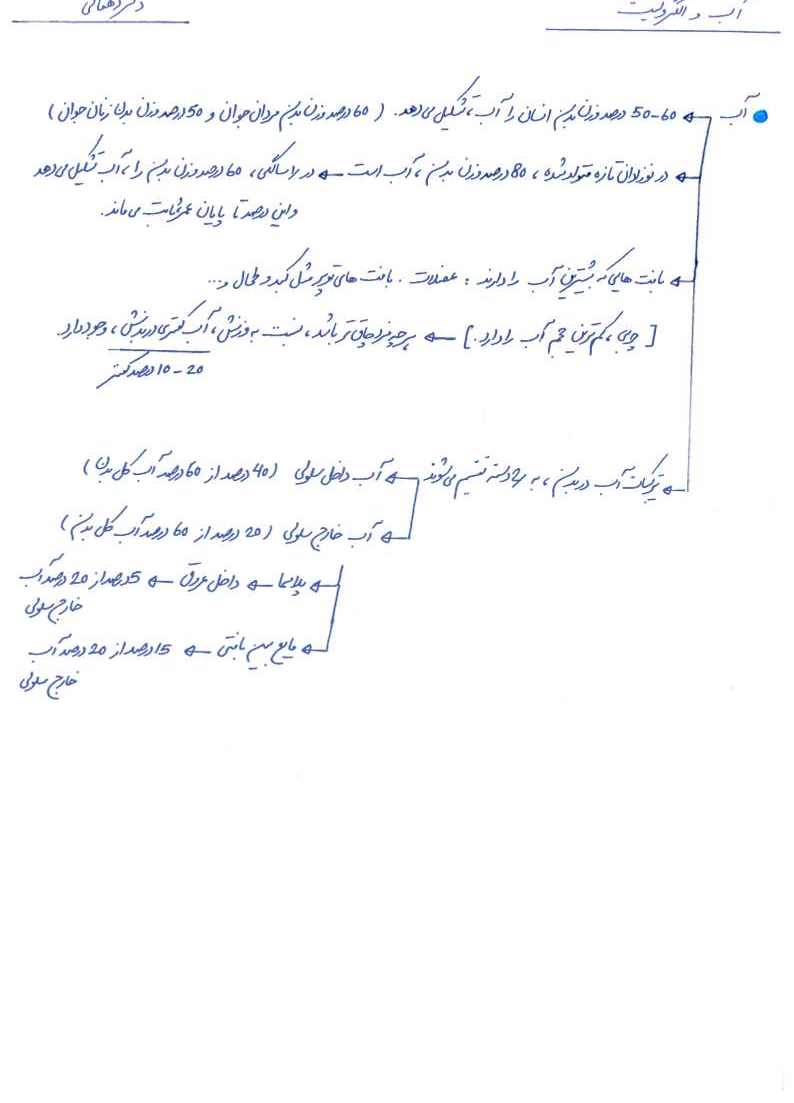 آب و الکترولیت
دکتر دهقانی
آب ← 50-60 درصد وزن بدن انسان را آب، تشکیل می‌دهد. (60 درصد وزن بدن مردان جوان و 50 درصد وزن بدن زنان جوان)
← در نوزادان تازه متولد شده، 80 درصد وزن بدن، آب است ← در سالگی، 60 درصد وزن بدن را، آب تشکیل می‌دهد
و این درصد تا پایان عمر ثابت می‌ماند.
← بافت هایی که بیشترین آب را دارند : عضلات . بافت های توپر مثل کبد و طحال و...
[چربی، کم ترین حجم آب را دارد.] ← هر چه فرد چاق تر باشد، نسبت به وزنش، آب کمتری در بدنش، وجود دارد.
10-20 درصد کمتر
← ترکیبات آب در بدن، به 2 دسته تقسیم می‌شوند ← آب داخل سلولی (40 درصد از 60 درصد آب کل بدن)
← آب خارج سلولی (20 درصد از 60 درصد آب کل بدن)
← پلاسما ← داخل عروق ← 5 درصد از 20 درصد آب
خارج سلولی
← مایع بین بافتی ← 15 درصد از 20 درصد آب
خارج سلولی